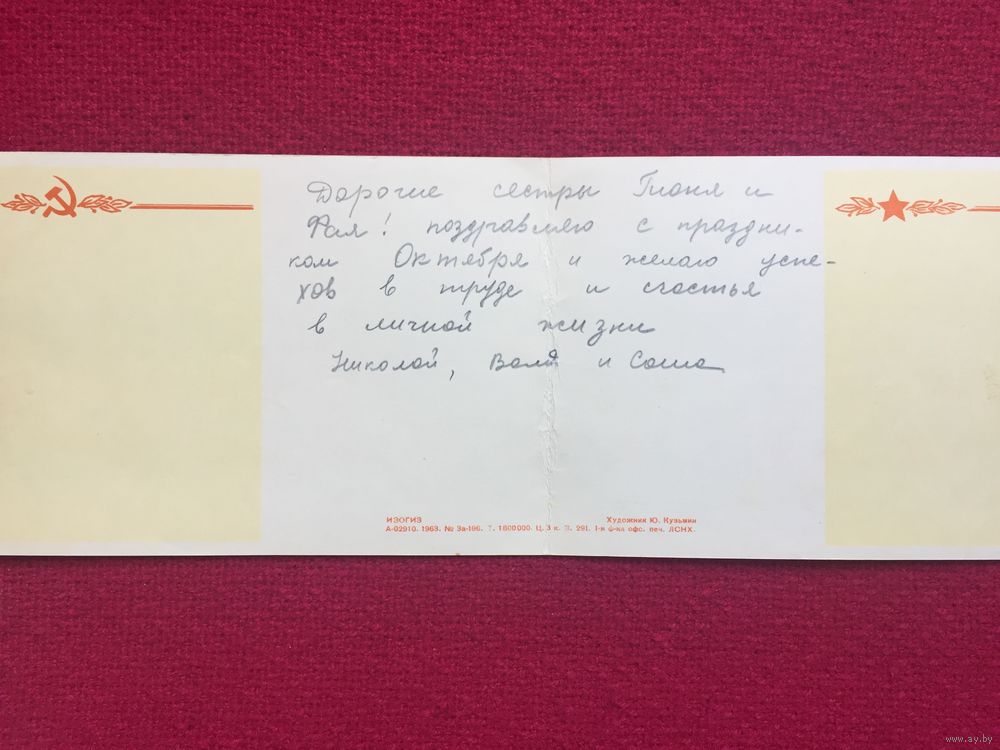 Дорогие сестры Тоня и
Рая! поздравляю с праздни-
ком Октября и желаю успе-
хов в труде и счастья
в личной жизни
Николай, Валя и Саша
ИЗОГИЗ
Художник Ю. Кузьмин
А-02910. 1963. № За-196. Т. 1800000. Ц. 3 к. З. 291. 1-я ф-ка офс. печ. ЛСНХ.
www.ay.by